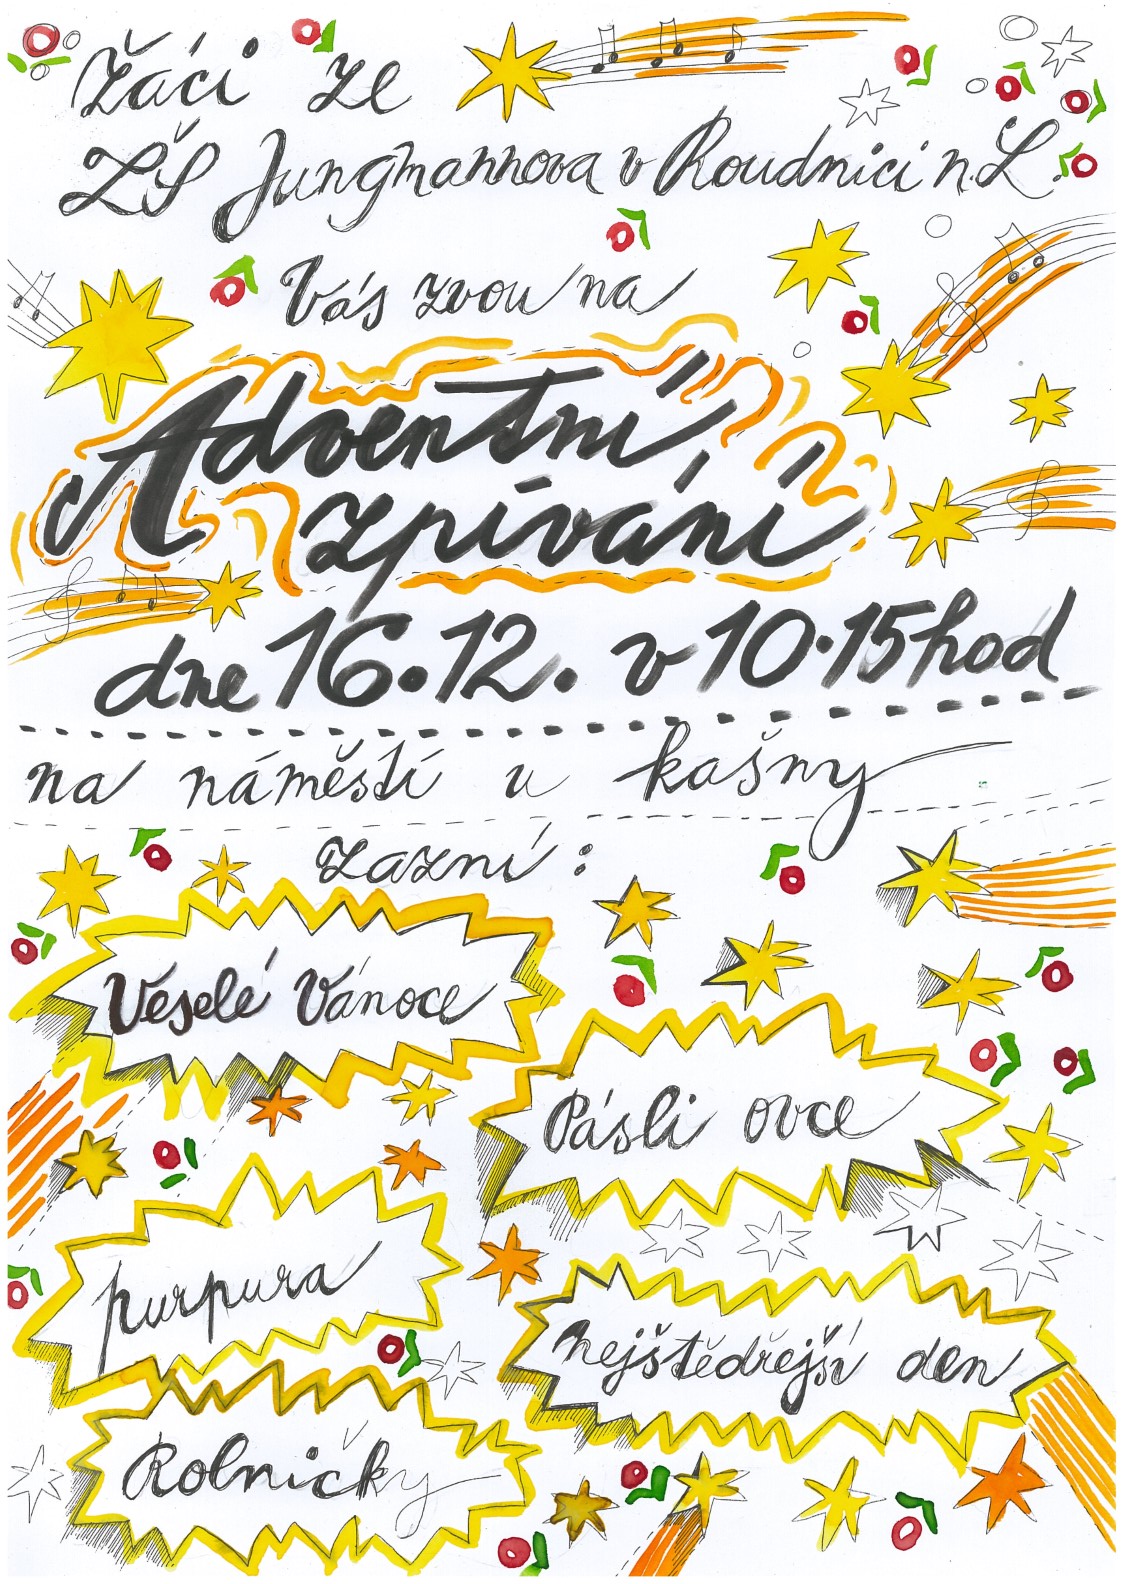 Žáci ze
ZŠ Jungmannova v Roudnici n. L.
Vás zvou na
Adventní
zpívání
dne 16.12. v 10.15 hod
na náměstí u kašny
zazní:
Veselé Vánoce
Pásli ovce
purpura
nejštědřejší den
Rolničky